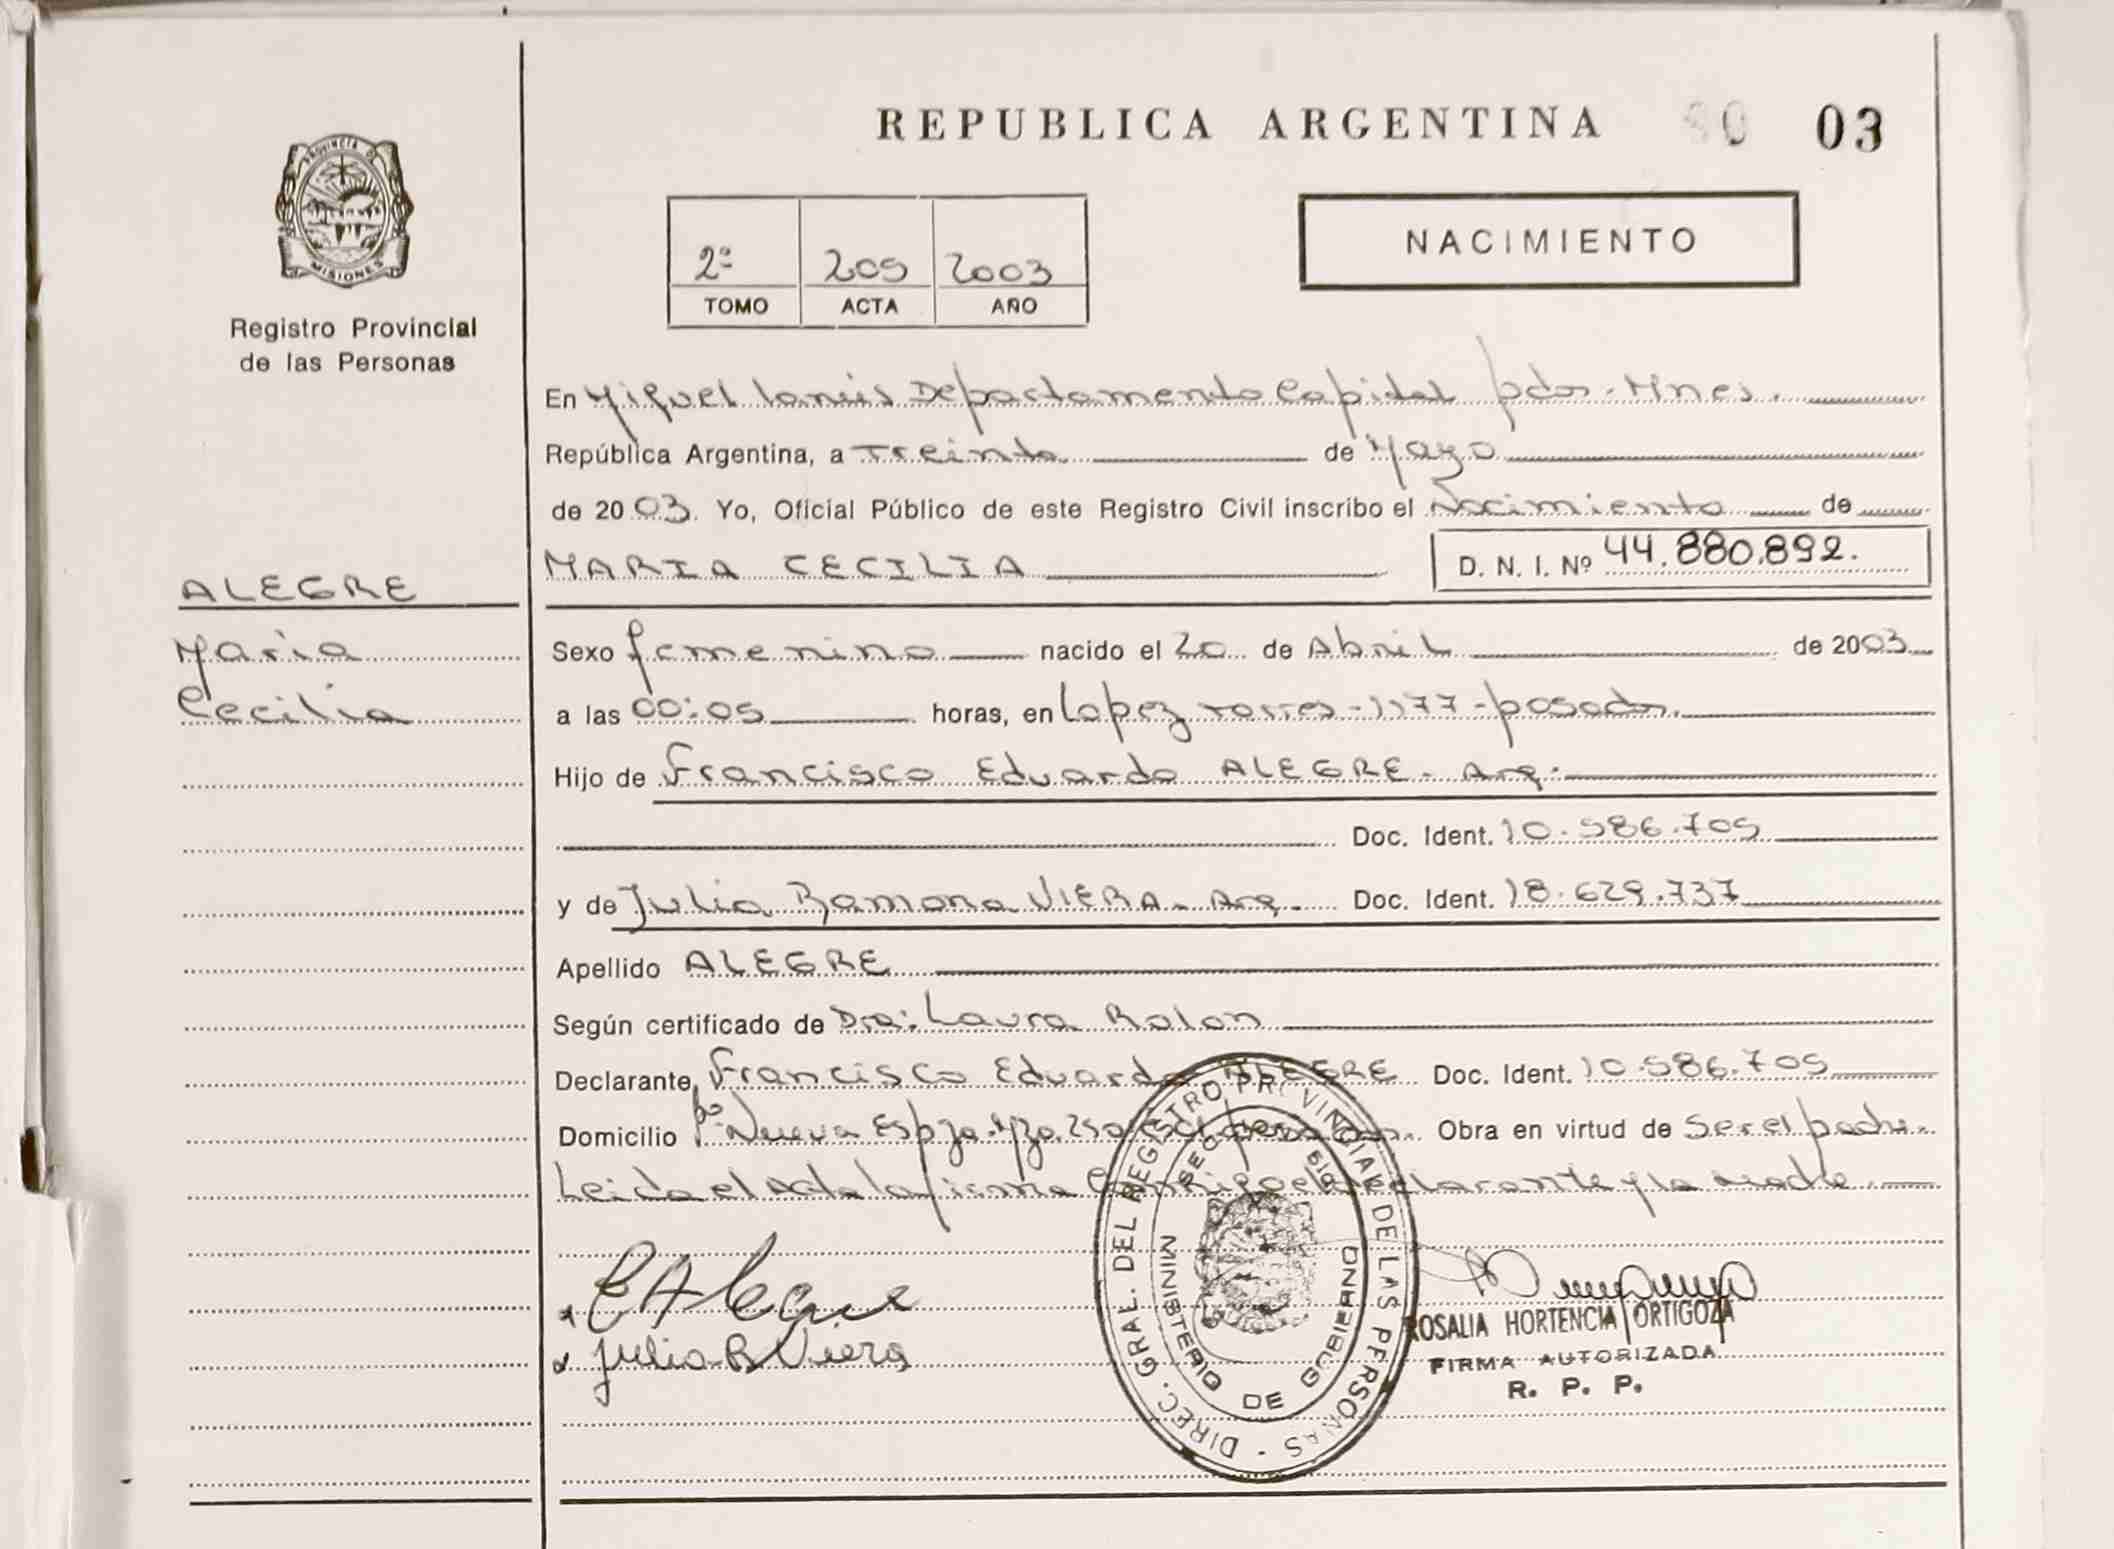 REPUBLICA ARGENTINA 03
PROVINCIA D
MISIONES
Registro Provincial
de las Personas
2º 205 2003
TOMO ACTA AÑO
NACIMIENTO
En Miguel Lanús Departamento Capital pdas. Mnes.
República Argentina, a Treinta de Mayo
de 2003. Yo, Oficial Público de este Registro Civil inscribo el Nacimiento de
MARIA CECILIA
D. N. I. Nº 44.880.892.
ALEGRE
Maria
Cecilia
Sexo femenino nacido el 20 de Abril de 2003
a las 00:05 horas, en Lopez Torres - 1177 - posadas.
Hijo de Francisco Eduardo ALEGRE - Arg.
Doc. Ident. 10.586.705
y de Julia Ramona VIERA - Arg. Doc. Ident. 18.629.737
Apellido ALEGRE
Según certificado de Dra: Laura Rolon
Declarante Francisco Eduardo ALEGRE Doc. Ident. 10.586.705
Domicilio Bº Nueva Espza. Mza. 250 Obra en virtud de Ser el padre.
Leida el Acta la firma Conmigo el declarante y la madre.
E Alegre
Julia R Viera
DIREC. GRAL. DEL REGISTRO PROVINCIAL DE LAS PERSONAS
MINISTERIO DE GOBIERNO
ROSALIA HORTENCIA ORTIGOZA
FIRMA AUTORIZADA
R. P. P.